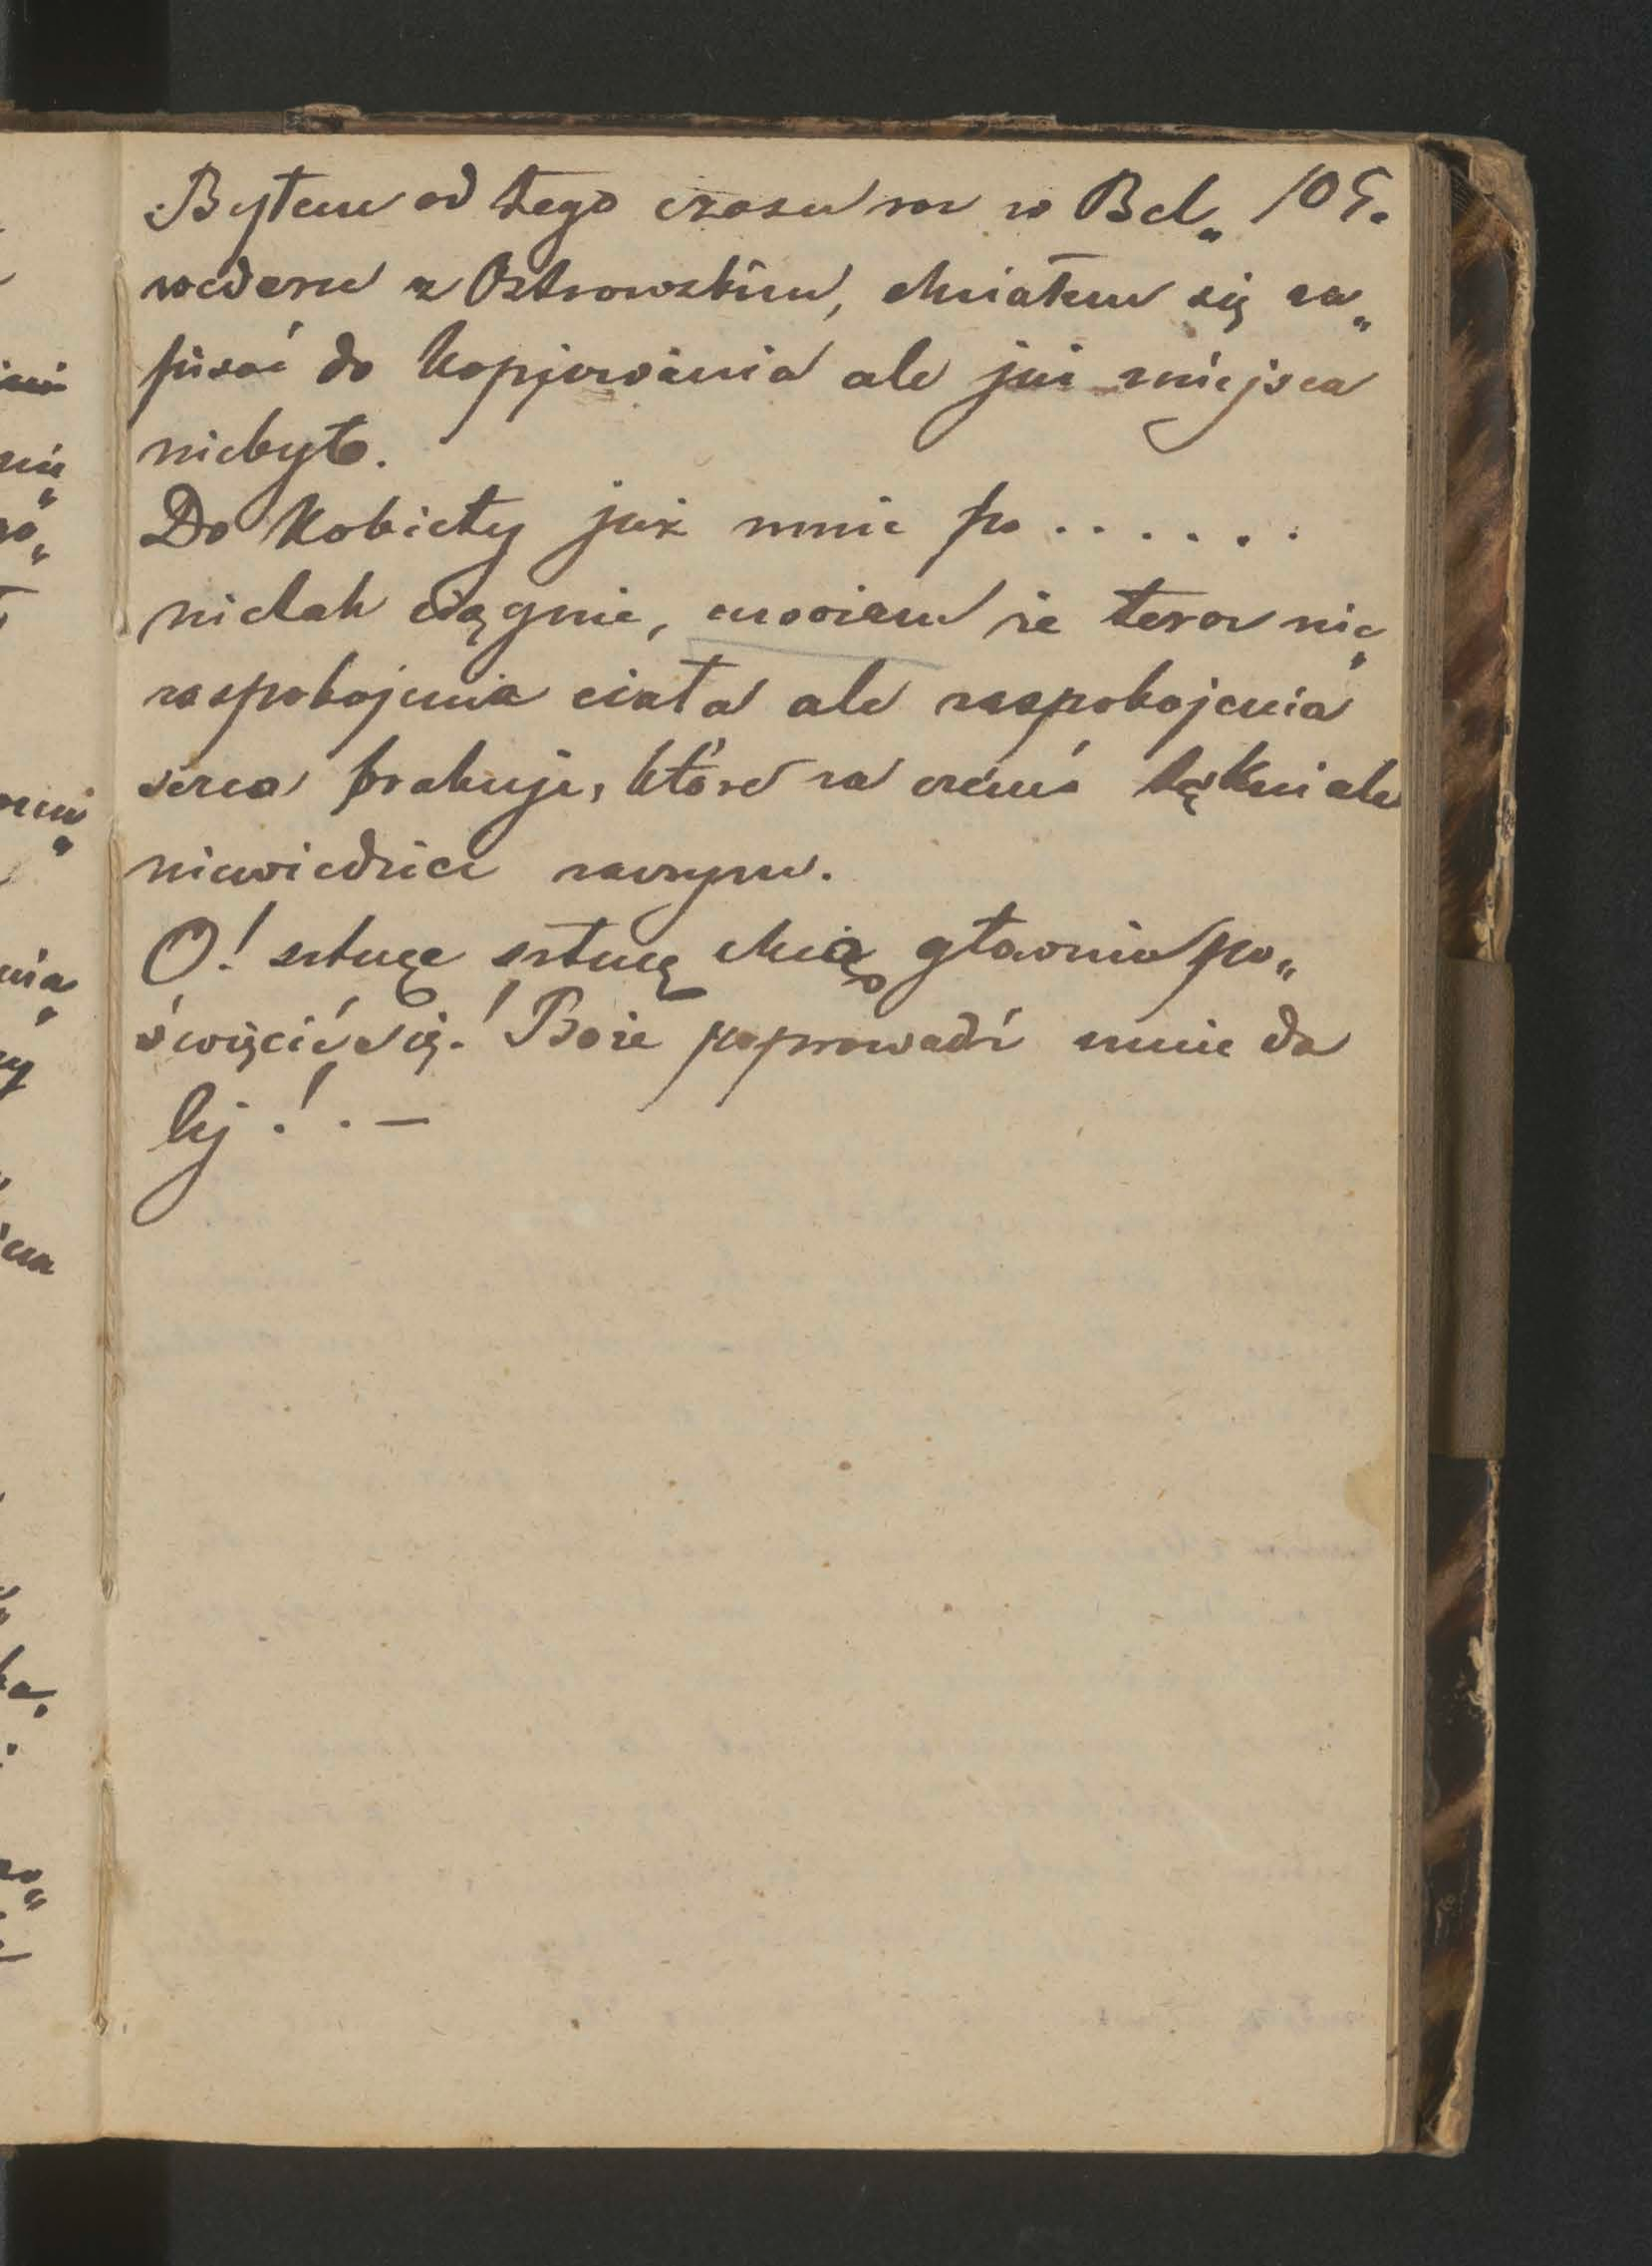 Byłem od tego czasu raz w Bel„ 105.
wederu z Ostrowskim, chciałem się za„
pisać do kopjowania ale już miejsca
niebyło.
Do kobiety już mnie po . . . . . .
nietak ciągnie, że teraz nie„
zaspokojenia ciała ale zaspokojenia
serca brakuje, które za czémś tęskni ale
niewiedzieć zaczym.
O! sztuce sztuce chcę głównie po„
święcić się! Boże poprowadź mnie da
lej ! . —